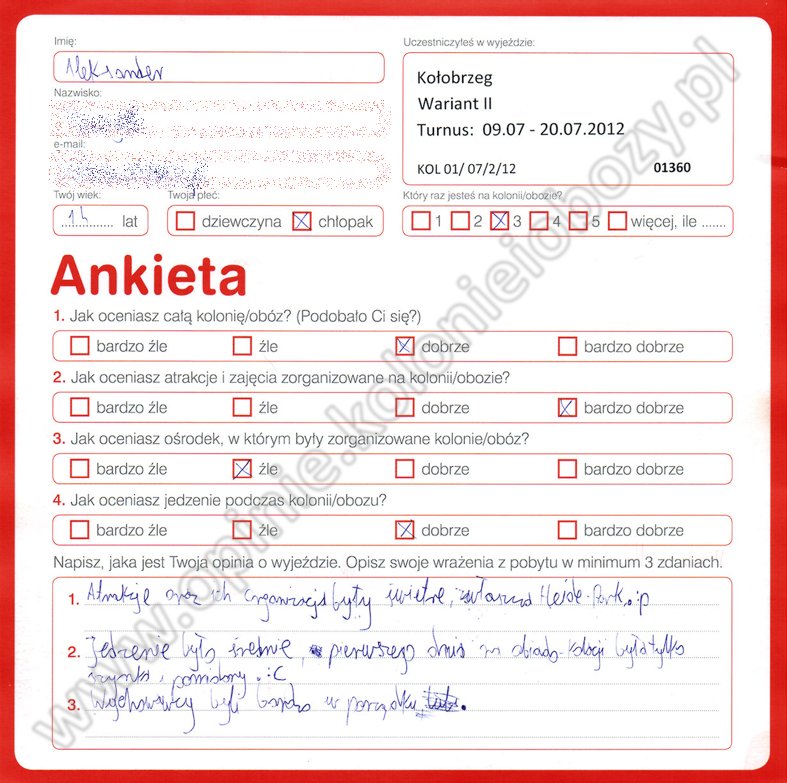 Imię:
Uczestniczyłeś w wyjeździe:
Aleksander
Kołobrzeg
Wariant II
Turnus: 09.07 - 20.07.2012
KOL 01/ 07/2/12
01360
Nazwisko:
e-mail:
Twój wiek:
Twoja płeć:
Który raz jesteś na kolonii/obozie?
lat
dziewczyna
chłopak
1 2 3 4 5 więcej, ile .......
Ankieta
1. Jak oceniasz całą kolonię/obóz? (Podobało Ci się?)
bardzo źle źle dobrze bardzo dobrze
2. Jak oceniasz atrakcje i zajęcia zorganizowane na kolonii/obozie?
bardzo źle źle dobrze bardzo dobrze
3. Jak oceniasz ośrodek, w którym były zorganizowane kolonie/obóz?
bardzo źle źle dobrze bardzo dobrze
4. Jak oceniasz jedzenie podczas kolonii/obozu?
bardzo źle źle dobrze bardzo dobrze
Napisz, jaka jest Twoja opinia o wyjeździe. Opisz swoje wrażenia z pobytu w minimum 3 zdaniach.
1. Atrakcje oraz ich organizacja były świetne, zwłaszcza Heide-Park. :p
2. Jedzenie było średnie, pierwszego dnia na obiado-kolacji była tylko
szynka i pomidory. :C
3. Wychowawcy byli bardzo w porządku.
www.opinie.kolonieiobozy.pl